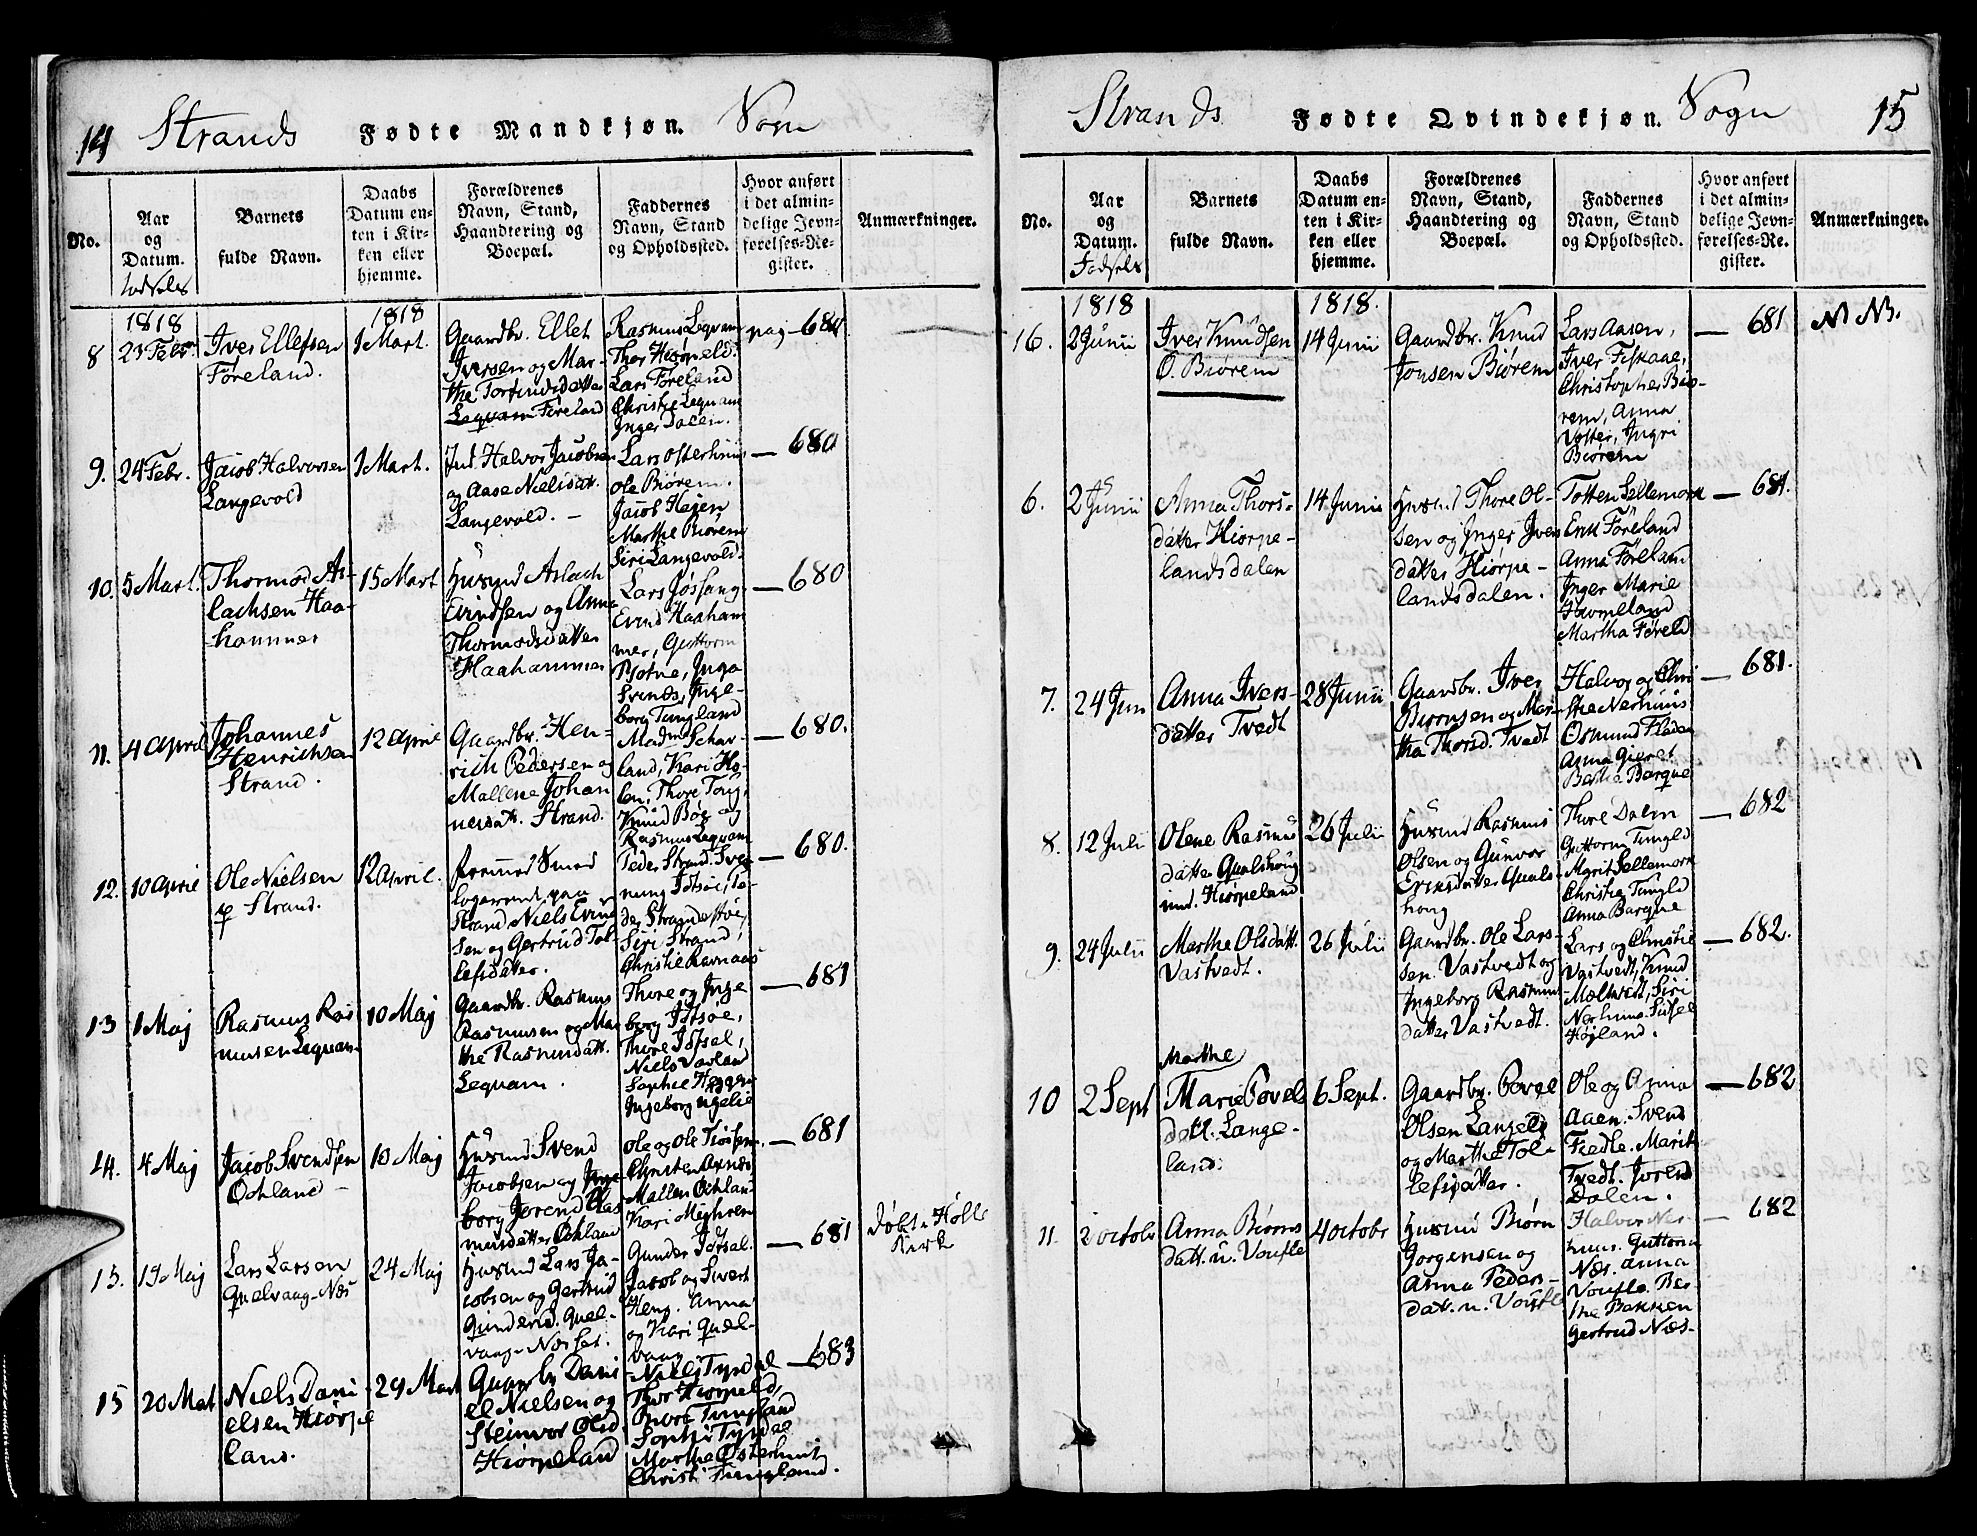 14 Strands Fødte Mandkjøn. Sogn
No.
Aar
og
Datum.
Fødsels
Barnets
fulde Navn.
Daabs
Datum en-
ten i Kir-
ken eller
hjemme.
Forældrenes
Navn, Stand,
Haandtering og
Boepæl.
Faddernes
Navn, Stand
og Opholdssted.
Hvor anført
i det almin-
delige Jevn-
førelses-Re-
gister.
Anmærkninger.
8
1818
23 Febr.
Iver Ellefsen
Føreland.
1818
1 Mart.
Gaardbr. Ellef
Iversen og Mar-
the Torfindsdatter
Leqvam Føreland
Rasmus Leqvam
Thor Hiørpeld.
Lars Føreland
Christie Leqvam
Inger Dalen.
pag - 680
9.
24 Febr.
Jacob Halvorsen
Langevold
1 Mart.
Ind. Halvor Jacobsen
og Aase Nielsdatt.
Langevold. -
Lars Osterhuus
Ole Biørem.
Jacob Hagen
Marthe Biørem
Siri Langevold.
- 680
10.
5 Mart.
Thormod As-
lachsen Haa-
hammer
15 Mart.
Husmd Aslach
Evindsen og Anna
Thormodsdatter
Haahammer
Lars Jøsfang
Evind Haaham
mer, Guttorm
Inga
Svines, Inge-
borg Tungland
- 680
11.
4 April
Johannes
Henrichsen
Strand.
12 April
Gaardbr. Hen-
rich Pedersen og
Mallene Johan
nesdatt. Strand.
Madm Schar-
land, Kari Ho-
len, Thore Tong,
Knud Bøe og
Rasmus Leqvam
- 680.
12.
10 April
Ole Nielsen
Strand.
12 April.
Smed
Logerende paa
Strand, Niels Evind
sen og Gertrud Tol-
lefsdatter.
Peder Strand, Sven
nung Idsøe, Pe-
der Strandestøe,
Siri Strand,
Christie Ravnaas
- 680.
13
1 Maj
Rasmus Ras
musen Leqvam
10 Maj
Gaardbr. Rasmus
Rasmusen og Mar
the Rasmusdatt.
Leqvam.
Thore og Inge
borg Idsøe,
Thore Idsal,
Niels Vatland
Sophie Heggem
Ingeborg
- 681
14.
4 Maj
Jacob Svendsen
Ochland -
10 Maj
Husmd Svend
Jacobsen og Inge
borg Jorend Ras
musdatter Ochland
Ole og Ole Tiøstem.
Christen Axnæs
Mallen Ochland
Kari
- 681
15.
19 Maj
Lars Larsen
Qvelvaag-Næs
24 Maj
Husmd Lars Ja-
cobsen og Gertrud
Gundersd. Qvel-
vaag-Næset.
Gunder Idsal.
Jacob og Sivert
Heng. Anna
og Kari Qvæl-
vaag -
- 681
Døbt i Hølle
Kirk
15
20 Mart
Niels Dani
elsen Hiørpe
land.
29 Mart
Gaardbr Dani
el Nielsen og
Steinvor Olsd.
Hiørpeland
Niels Tyndal
Thor Hiørpeld,
Tungland
Sophi Tyndal
Marthe Østerhuus
Christi Tungland.
- 683
Strands Fødte Qvindekjøn. Sogn 15
No.
Aar
og
Datum.
Fødsels
Barnets
fulde Navn.
Daabs
Datum en-
ten i Kir-
ken eller
hjemme.
Forældrenes
Navn, Stand,
Haandtering og
Boepæl.
Faddernes
Navn, Stand
og Opholdssted.
Hvor anført
i det almin-
delige Jevn-
førelses-Re-
gister.
Anmærkninger.
16.
1818
2 Junii
Iver Knudsen
O. Biørem
1818.
14 Junii
Gaardbr. Knud
Jonsen Biørem
Lars Aasen,
Iver Fiskaae,
Christopher Biø-
rem, Anna
Voster, Ingri
Biørem
- 681
N NB.
6.
2 Junii
Anna Thors-
datter Hiørpe-
landsdalen
14 Junii
Husmd Thore Ol-
sen og Inger Ivers
datter Hiørpe-
landsdalen.
Totten Sellemork
Erik Føreland
Anna Føreland
Inger Marie
Martha Føreld
- 681.
7.
24 Jun
Anna Ivers-
datter Tvedt
28 Junii
Gaardbr. Iver
Biørnsen og Mar-
tha Thorsd. Tvedt
Halvor og Chri
sthe Nerhuus
Osmund Fladen
Anna Gieret
Bertha Barqve
- 681.
8.
12 Juli
Olene Rasmus
datter Qvalshoug
und. Hiørpeland
26 Julii
Husmd Rasmus
Olsen og Gunvor
Eriksdatter Qvals-
houg
Thore Dalen
Guttorm Tungld
Marit Sellemork
Christie Tungld
Anna Barqve
- 682
9.
24 Julii
Marthe Olsdatt.
Vastvedt.
26 Julii
Gaardbr. Ole Lars-
sen. Vastvedt og
Ingeborg Rasmus
datter Vastvedt.
Lars og Christie
Vastvedt, Knud
Siri
Nerhuus. Sidsel
Højland.
- 682.
10
2 Sept
Marthe
Marie Povels
datt. Lange-
land.
6 Sept.
Gaardbr. Povel
Olsen Langeld
og Marthe Tol-
lefsdatter.
Ole og Anna
Aaen. Svend
Fedle. Marit
Tvedt. Jorend
Dalen.
- 682
11.
2 octobr
Anna Biørns
datt. u. Voufle
4 octobr
Husmd Biørn
Jorgensen og
Anna Peders-
datt. u. Voufle
Halvor Ner-
huus. Guttorm
Næs. Anna
Voufle. Ber-
the Bakken
Gertrud Næs-
- 682